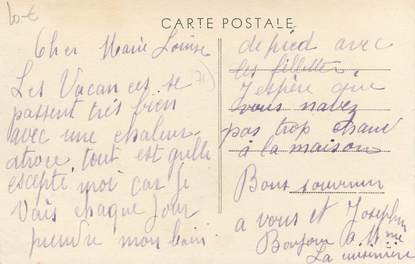 10 €
CARTE POSTALE
Cher Marie Louise
Les Vacances se
passent très bien
avec une chaleur
atroce, tout est grille
escepté moi car je
Vais chaque jour
prendre mon bain
71)
de pied avec
les fillettes
J'espère que
vous navez
pas trop chaud
à la maison
Bons souvenir
a vous et Joseph
Bonjour a Mme
La